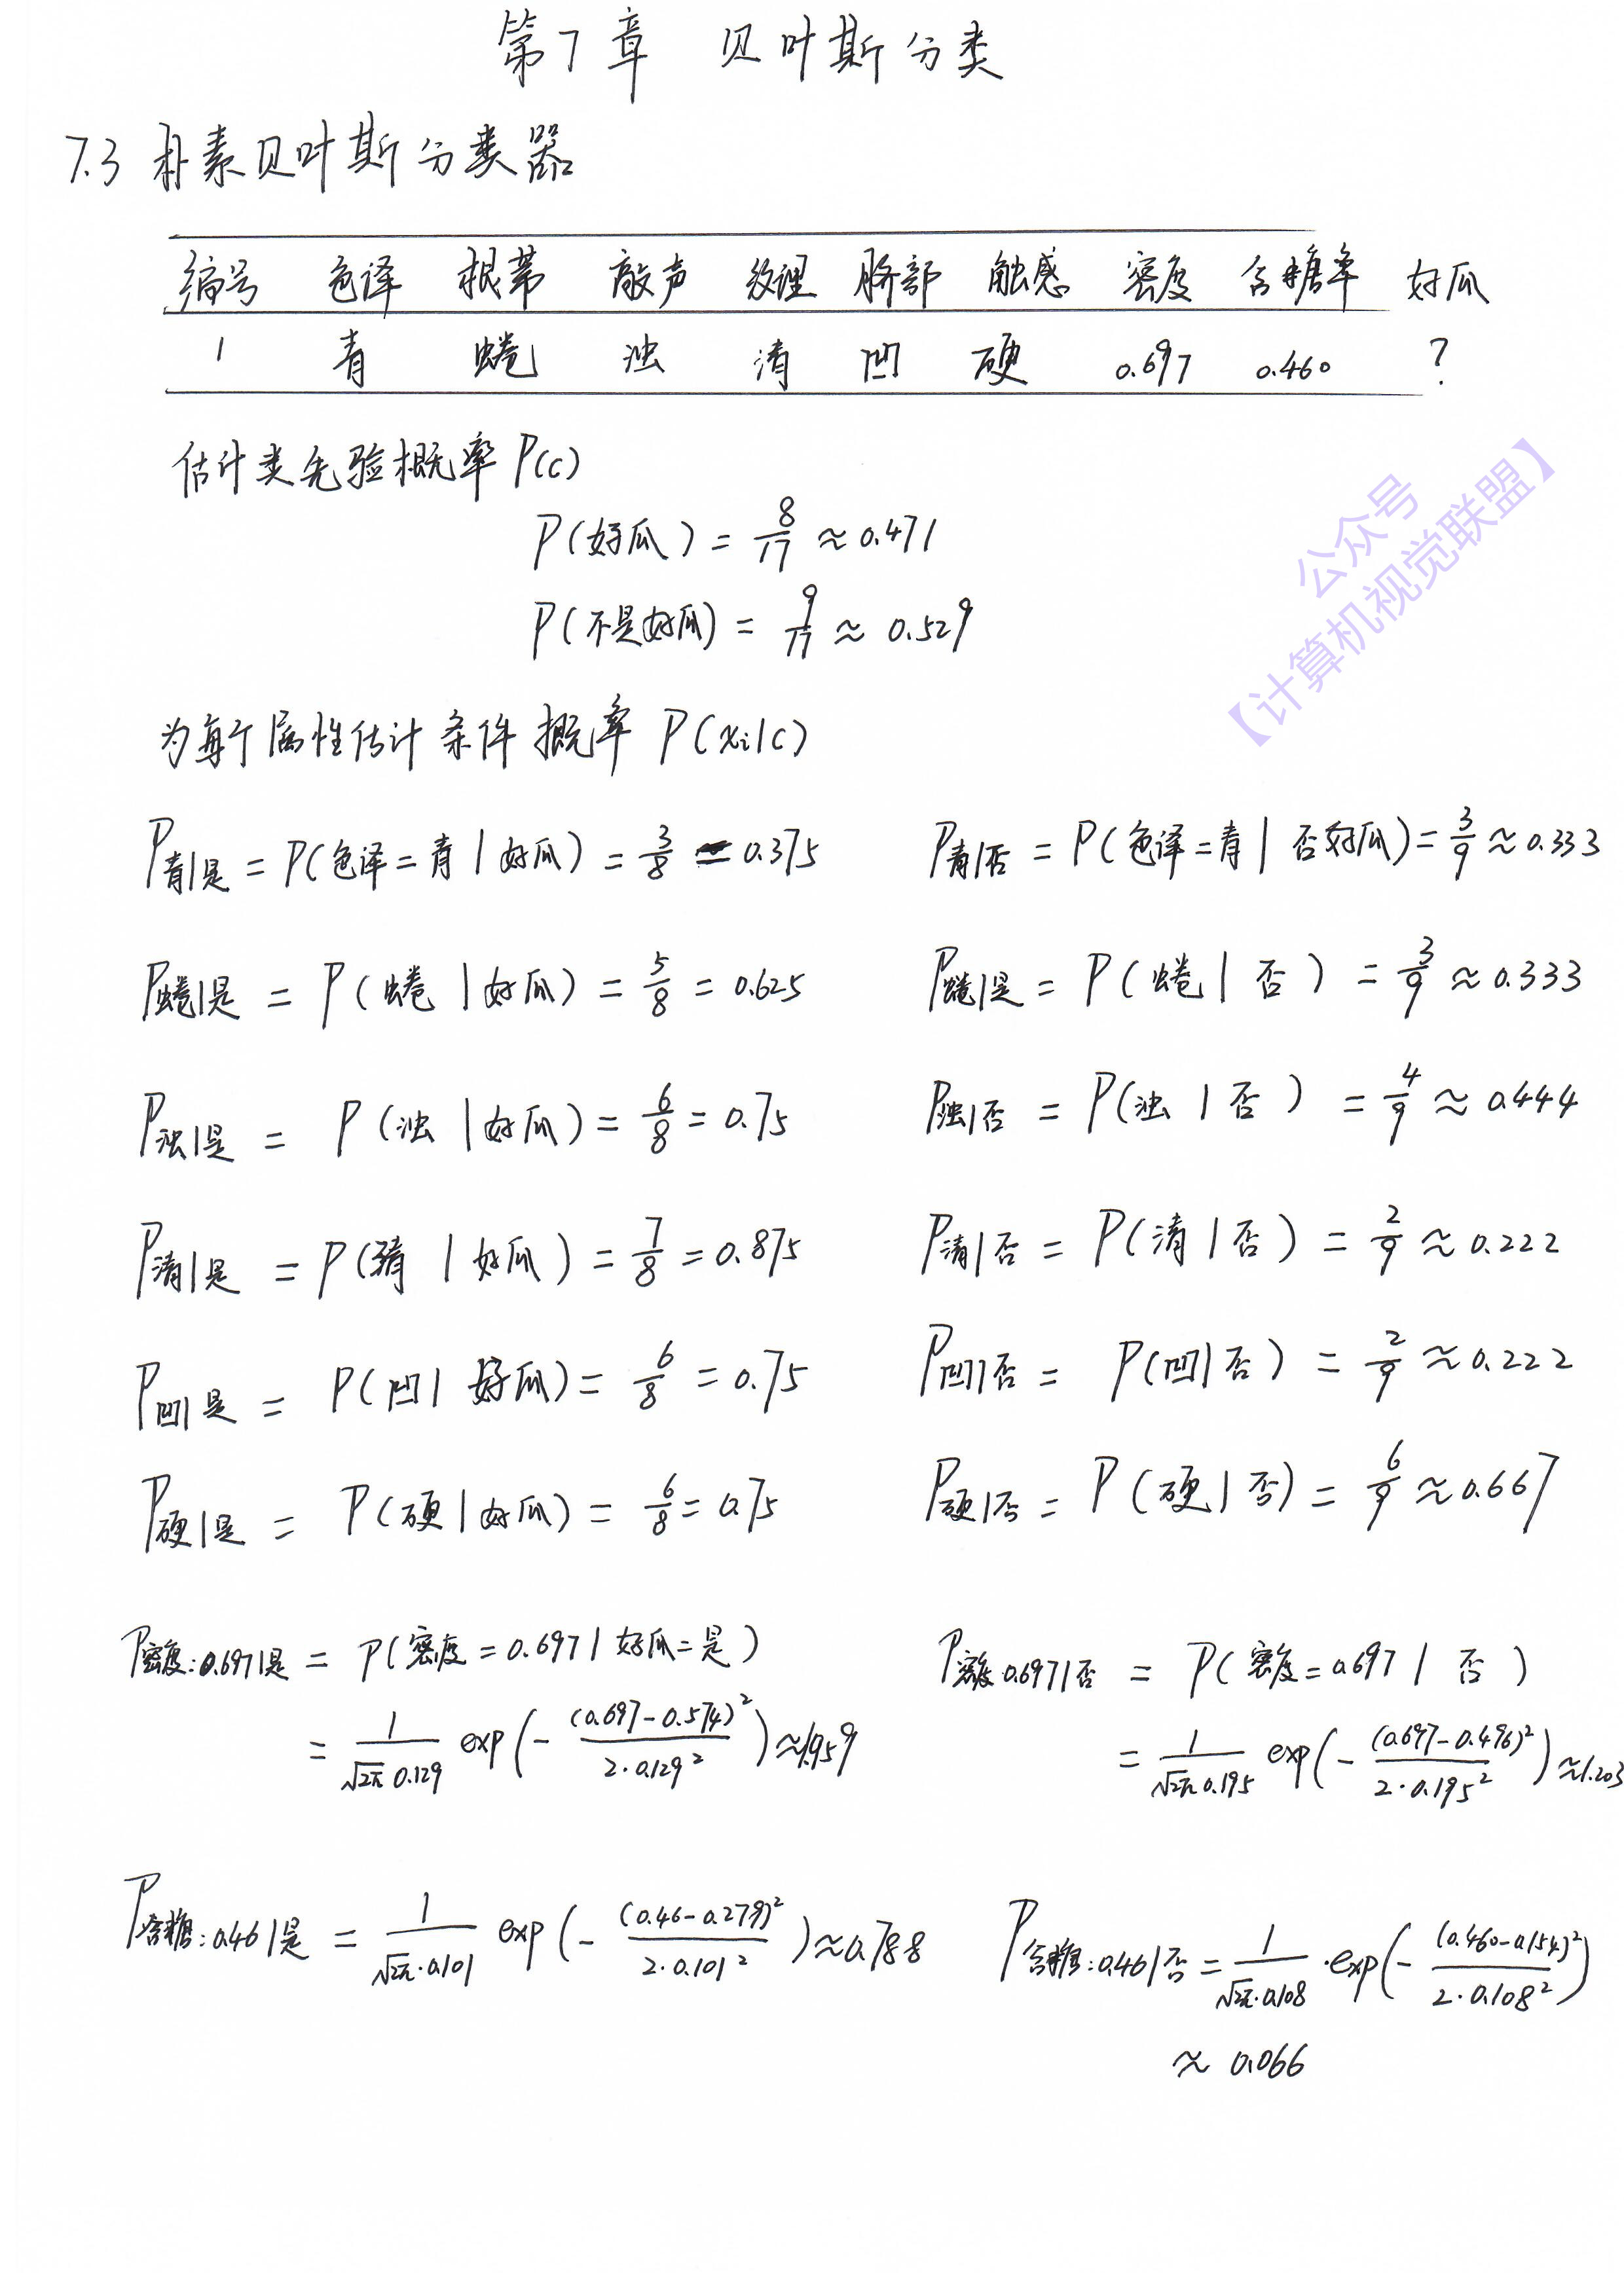 第7章 贝叶斯分类
7.3 朴素贝叶斯分类器
编号 色泽 根蒂 敲声 纹理 脐部 触感 密度 含糖率 好瓜
1 青 蜷 浊 清 凹 硬 0.697 0.460 ?
估计类先验概率 P(c)
P(好瓜) = 8/17 ≈ 0.471
P(不是好瓜) = 9/17 ≈ 0.529
为每个属性估计条件概率 P(xi|c)
P青|是 = P(色泽=青|好瓜) = 3/8 = 0.375 P青|否 = P(色泽=青|否好瓜) = 3/9 ≈ 0.333
P蜷|是 = P(蜷|好瓜) = 5/8 = 0.625 P蜷|是 = P(蜷|否) = 3/9 ≈ 0.333
P浊|是 = P(浊|好瓜) = 6/8 = 0.75 P浊|否 = P(浊|否) = 4/9 ≈ 0.444
P清|是 = P(清|好瓜) = 7/8 = 0.875 P清|否 = P(清|否) = 2/9 ≈ 0.222
P凹|是 = P(凹|好瓜) = 6/8 = 0.75 P凹|否 = P(凹|否) = 2/9 ≈ 0.222
P硬|是 = P(硬|好瓜) = 6/8 = 0.75 P硬|否 = P(硬|否) = 6/9 ≈ 0.667
P密度:0.697|是 = P(密度=0.697|好瓜=是) P密度:0.697|否 = P(密度=0.697|否)
= 1/(√2π 0.129) exp(-(0.697-0.574)²/(2·0.129²)) ≈ 1.959 = 1/(√2π 0.195) exp(-(0.697-0.496)²/(2·0.195²)) ≈ 1.203
P含糖:0.46|是 = 1/(√2π·0.101) exp(-(0.46-0.279)²/(2·0.101²)) ≈ 0.788 P含糖:0.46|否 = 1/(√2π·0.108)·exp(-(0.460-0.154)²/(2·0.108²))
≈ 0.066
公众号
【计算机视觉联盟】